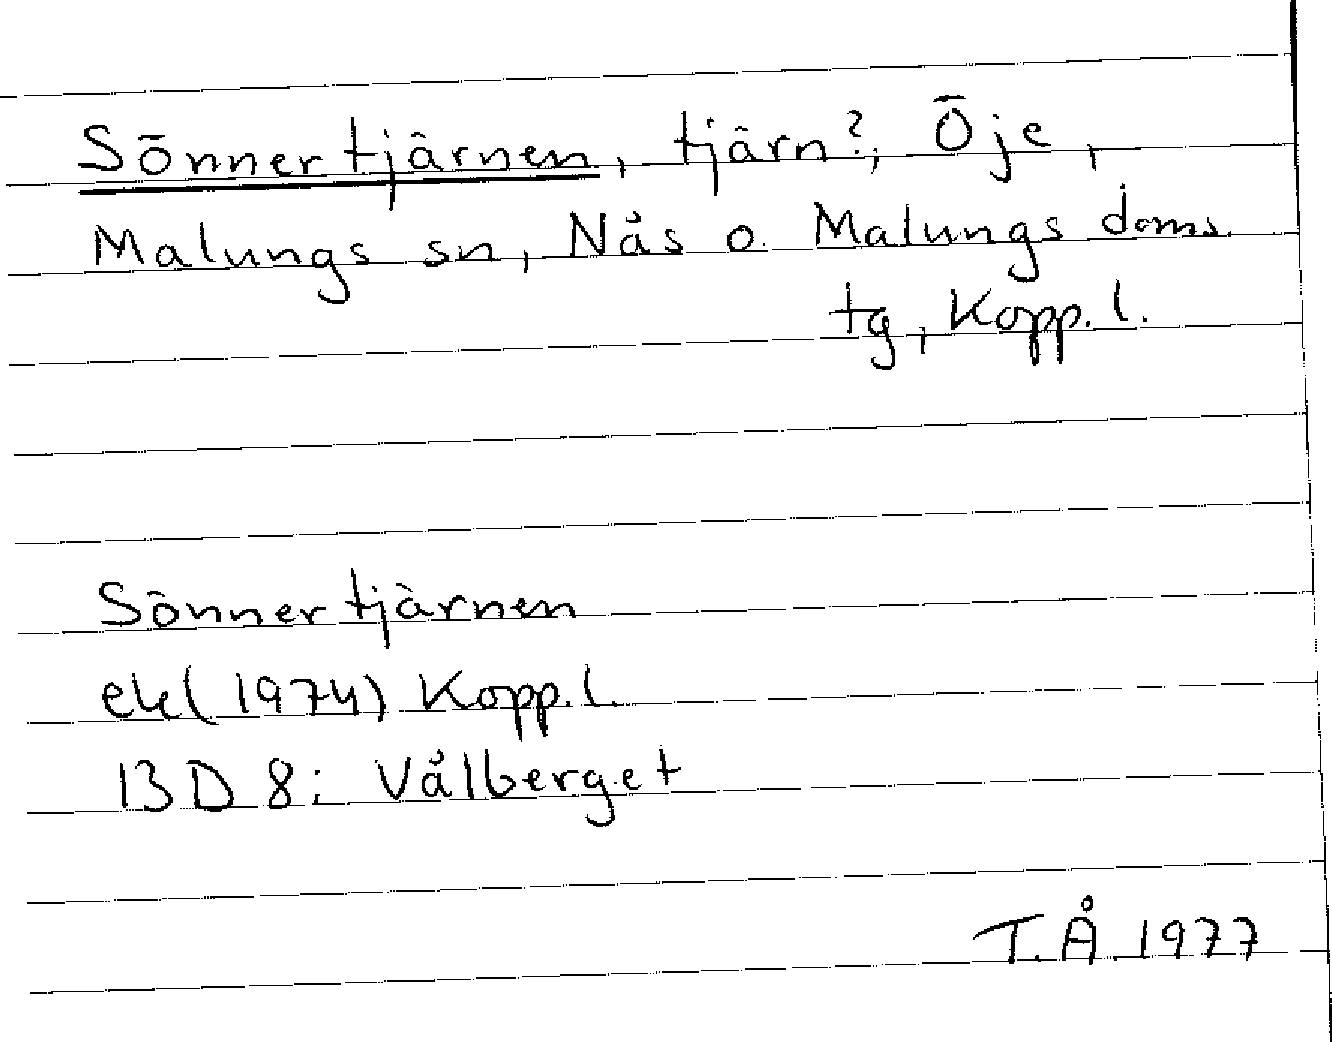 Sönnertjärnen, tjärn?, Öje,
Malungs sn, Nås o. Malungs doms.
tg, Kopp. l.
Sönnertjärnen
ek (1974) Kopp. l.
13D 8i Vålberget
T.Å. 1977